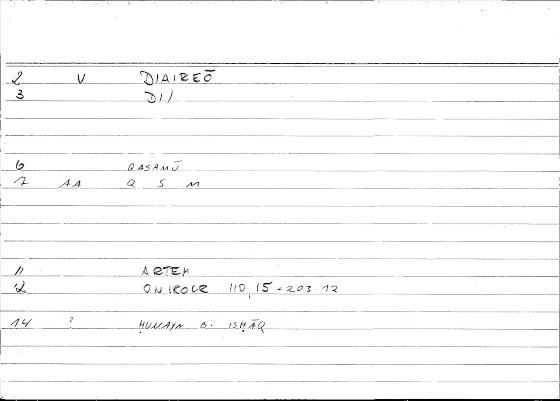 2 V DIAIREŌ
3 DI/
6 QASAMŪ
7 AA Q S M
11 ARTEM
12 ONIROCR 110,15-203.12
14 ? ḤUNAYN B. ISḤĀQ